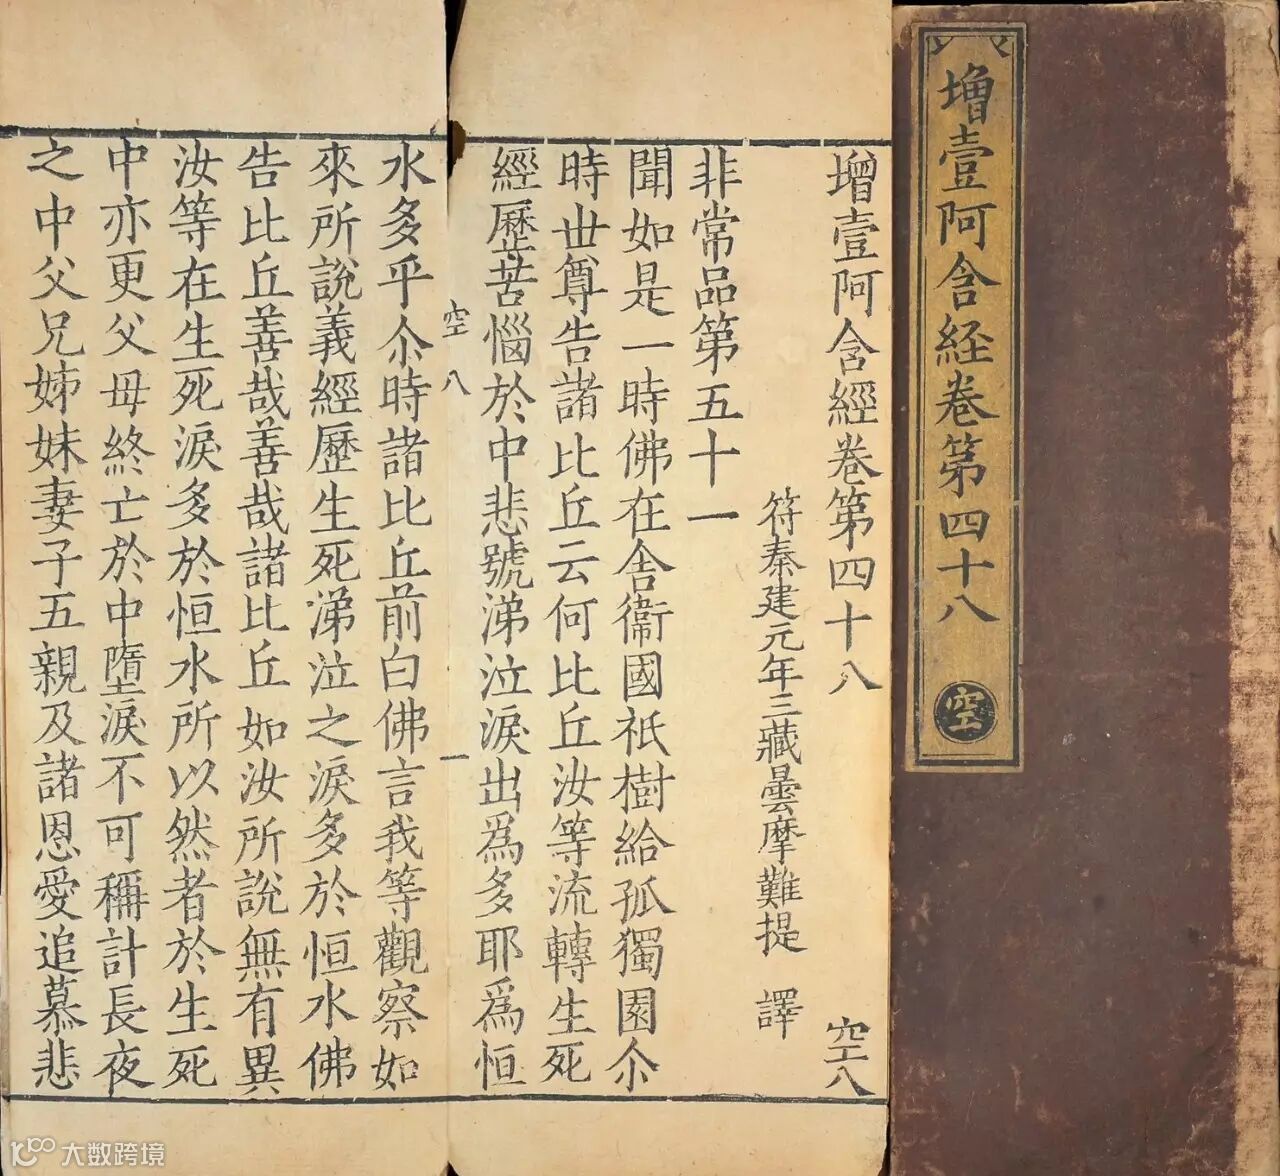 增壹阿含経卷第四十八
空
增壹阿含經卷第四十八 空八
符秦建元年三藏曇摩難提 譯
非常品第五十一
聞如是一時佛在舍衞國祇樹給孤獨園尒
時世尊告諸比丘云何比丘汝等流轉生死
經歷苦惱於中悲號涕泣淚出爲多耶爲恒
空 八 一
水多乎尒時諸比丘前白佛言我等觀察如
來所說義經歷生死涕泣之淚多於恒水佛
告比丘善哉善哉諸比丘如汝所說無有異
汝等在生死淚多於恒水所以然者於生死
中亦更父母終亡於中墮淚不可稱計長夜
之中父兄姊妹妻子五親及諸恩愛追慕悲
10100 大数跨境